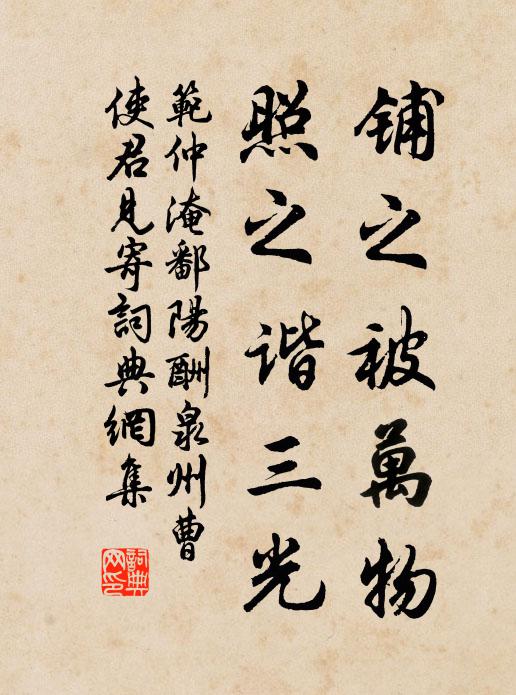 铺之被萬物
照之谐三光
範仲淹鄱陽酬泉州曹
使君見寄詞典網集
詞典
网印